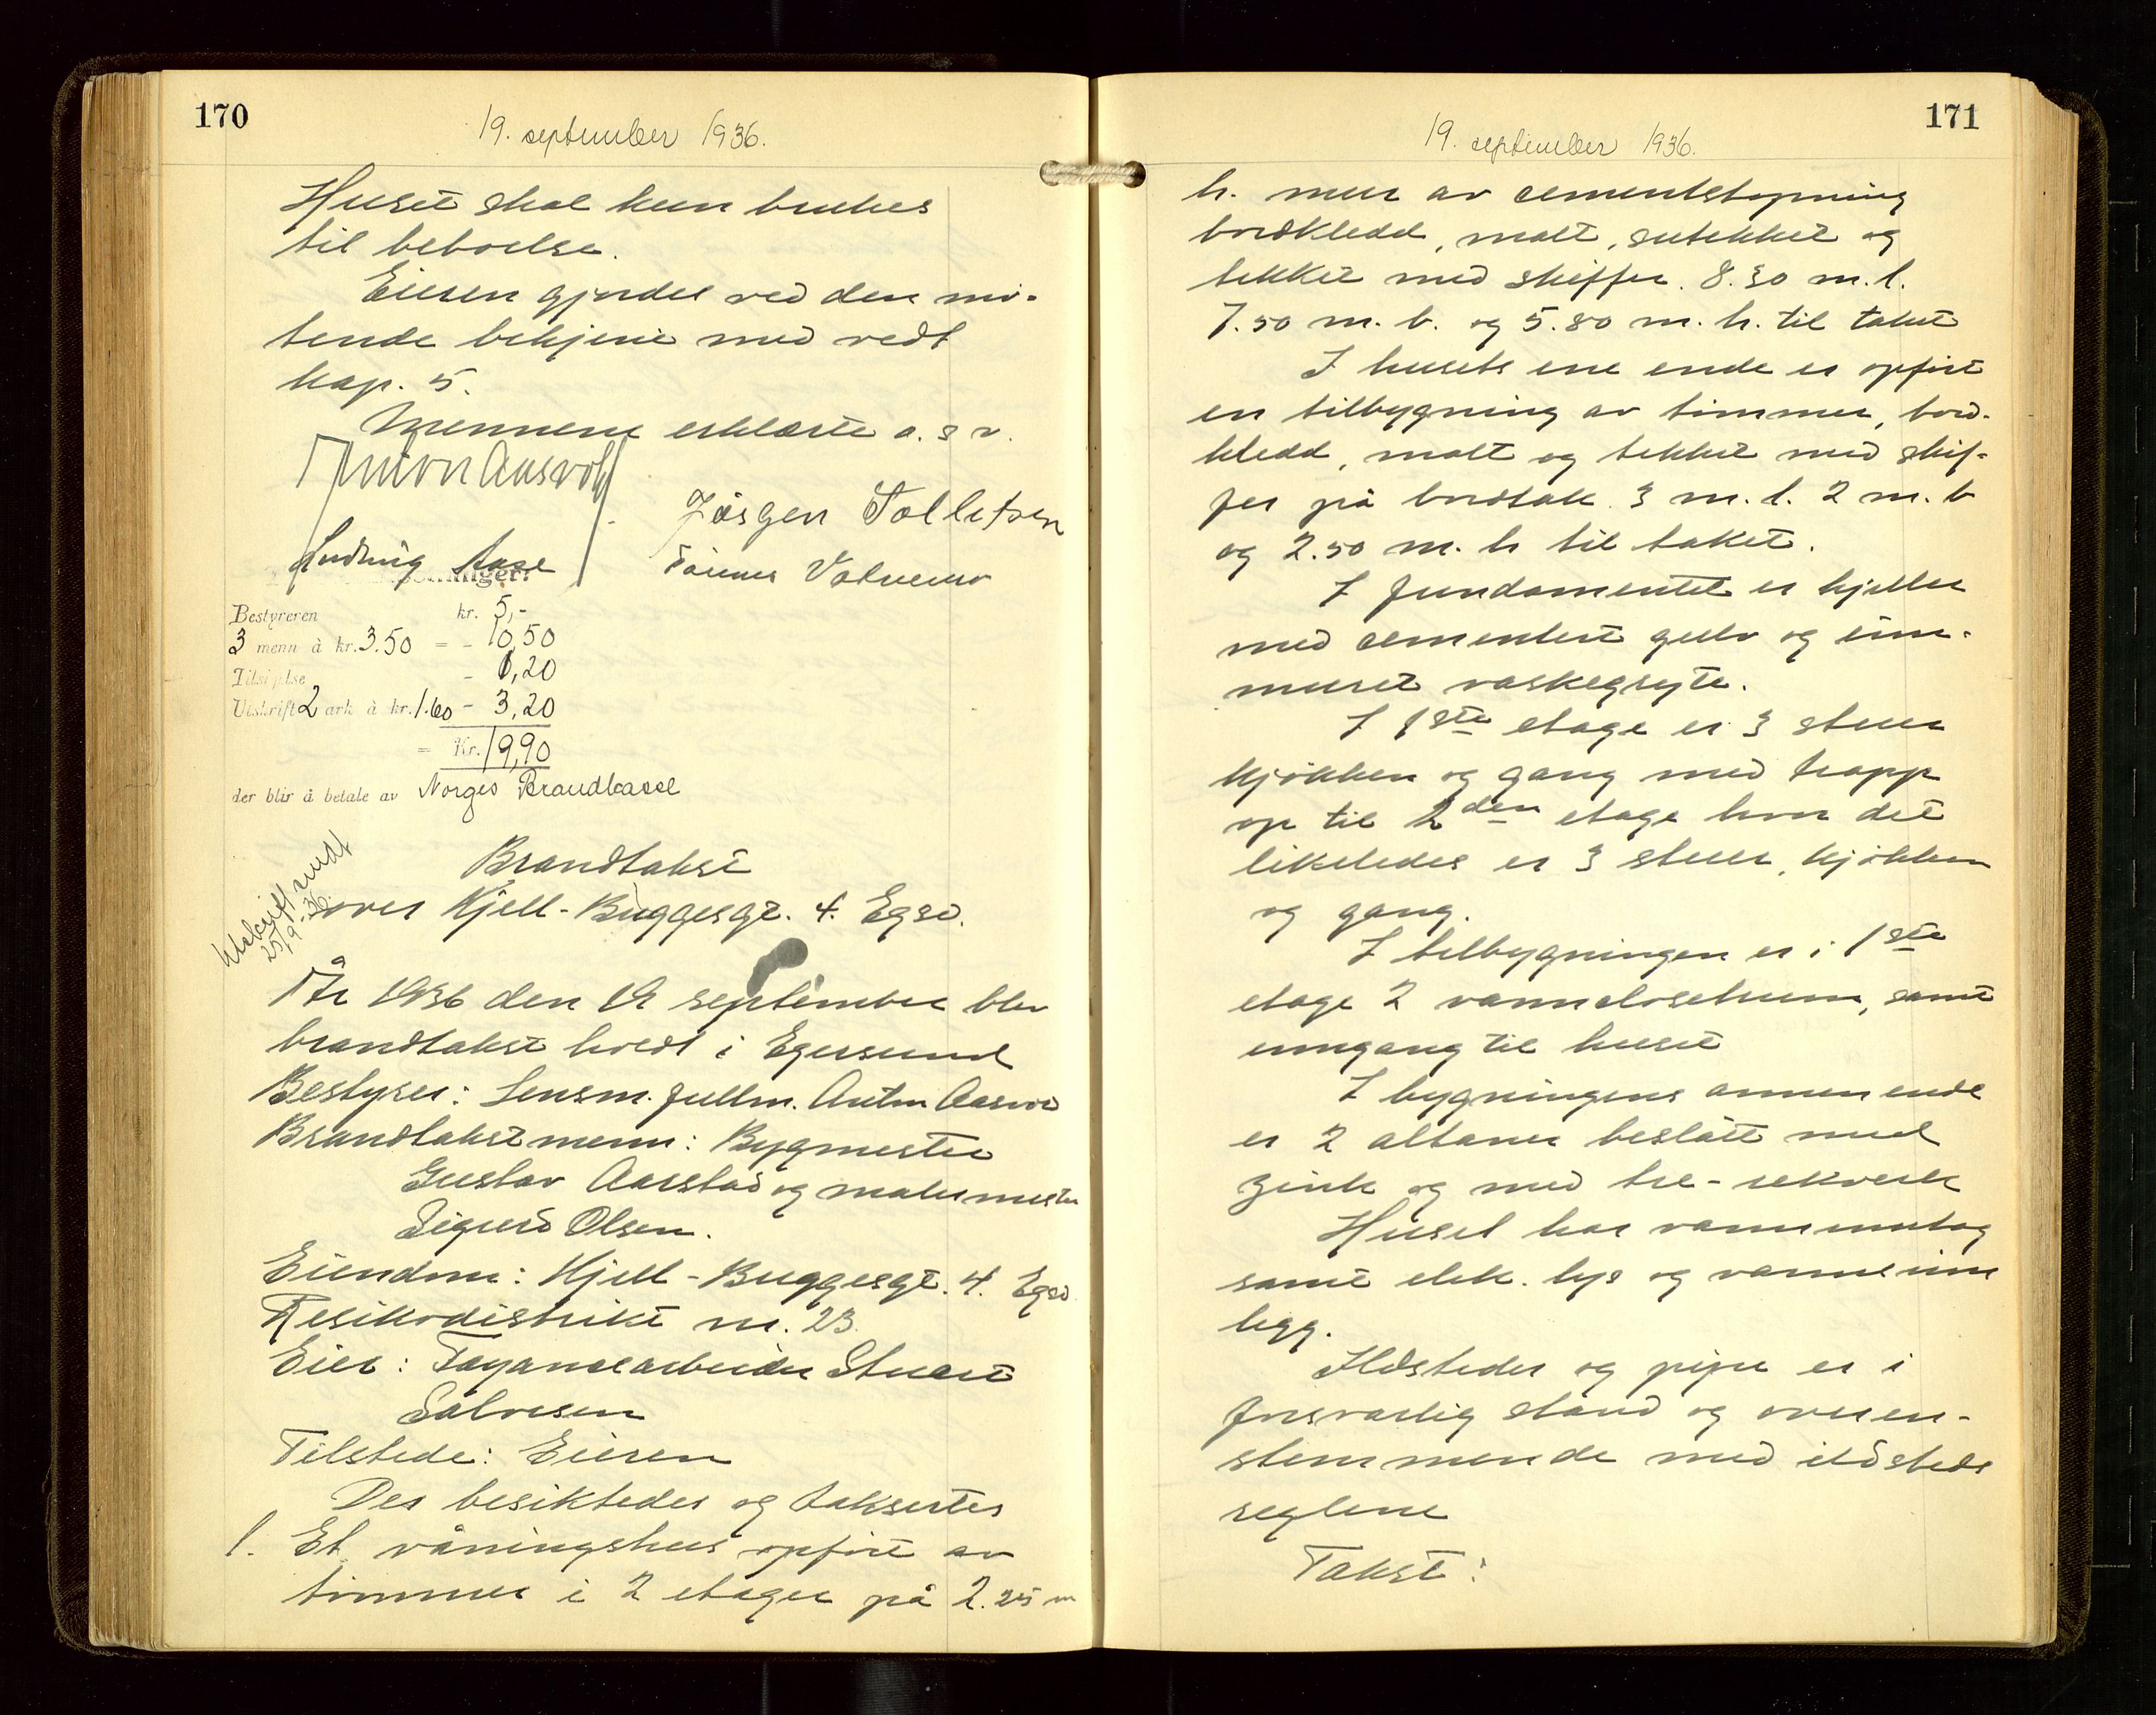 170
19. september 1936.
Huset skal kun brukes
til beboelse.
Eieren gjordes ved den mø-
tende bekjent med vedt
kap. 5.
Mennene erklærte o. s v.
Anton Aasvold
Jørgen Tollefsen
Ludvig Aase
Bestyreren kr. 5,-
3 menn à kr. 3.50 = - 10,50
Tilsigelse - 1,20
Utskrift 2 ark à kr. 1.60 - 3,20
= Kr. 19,90
der blir å betale av Norges Brandkasse
Utskrift sendt
25/9-36.
Brandtakst
over Kjell-Buggesgt. 4. Egsd.
År 1936 den 19 september blev
brandtakst holdt i Egersund
Bestyrer: Lensm. fullm. Anton Aasvold
Brandtakstmenn: Bygmester
Gustav Aarstad og malermester
Sigurd Olsen.
Eiendom: Kjell-Buggesgt. 4. Egsd
Resikodistrikt nr. 23.
Eier: Fayancearbeider Stuart
Salvesen
Tilstede: Eieren
Der besiktedes og taksertes
1. Et våningshus opført av
tømmer i 2 etager på 2.25 m
171
19. september 1936.
h. mur av cementstøpning
bordkledd, malt, sutekket og
tekket med skiffer. 8.30 m. l.
7.50 m. b. og 5.80 m. h. til taket
I husets ene ende er opført
en tilbygning av tømmer, bord-
kledd, malt og tekket med skif-
fer på bordtak 3 m. l. 2 m. b
og 2.50 m. h til taket.
I fundamentet er kjeller
med cementert gulv og inn-
muret vaskegryte.
I 1ste etage er 3 stuer
kjøkken og gang med trapp
op til 2den etage hvor det
likeledes er 3 stuer, kjøkken
og gang.
I tilbygningen er i 1ste
etage 2 vannclosetrum, samt
inngang til huset
I bygningens annen ende
er 2 altaner beslått med
zink og med tre-rekverk
Huset har vanninntag
samt elek. lys og varmeinn
legg.
Ildsteder og pipe er i
forsvarlig stand og overen-
stemmende med ildsteds
reglene
Takst: